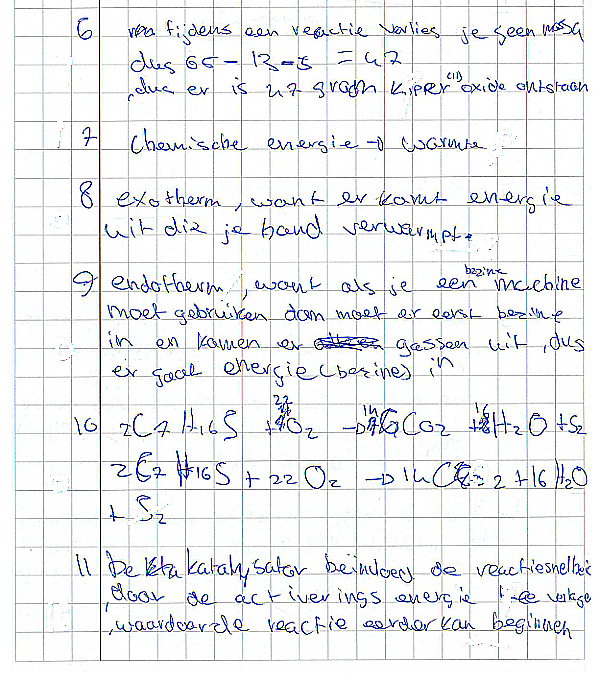 6 van tijdens een reactie verlies je geen massa
dus 65 - 13 - 5 = 47
, dus er is 47 gram Kipper (II) oxide ontstaan
7 Chemische energie → warmte
8 exotherm, want er komt energie
uit die je band verwarmpt.
9 endotherm, want als je een bezine machine
moet gebruiken dan moet er eerst bezine
in en komen er gassen uit, dus
er gaat energie (bezine) in
10 2C7 H16S + 22 O2 → 14 CO2 + 16 H2O + S2
2C7 H16S + 22 O2 → 14 CO2 + 16 H2O
+ S2
11 De katalysator beinvloed de reactiesnelheid
, door de activerings energie te verlage
, waardoor de reactie eerder kan beginnen